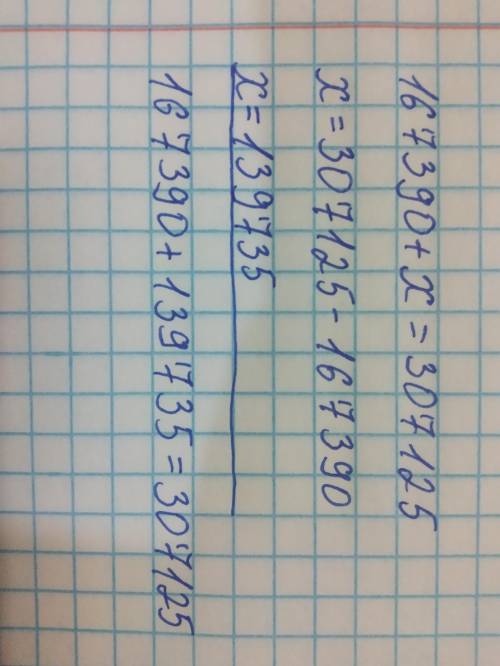 167390 + x = 307125
x = 307125 - 167390
x = 139735
167390 + 139735 = 307125